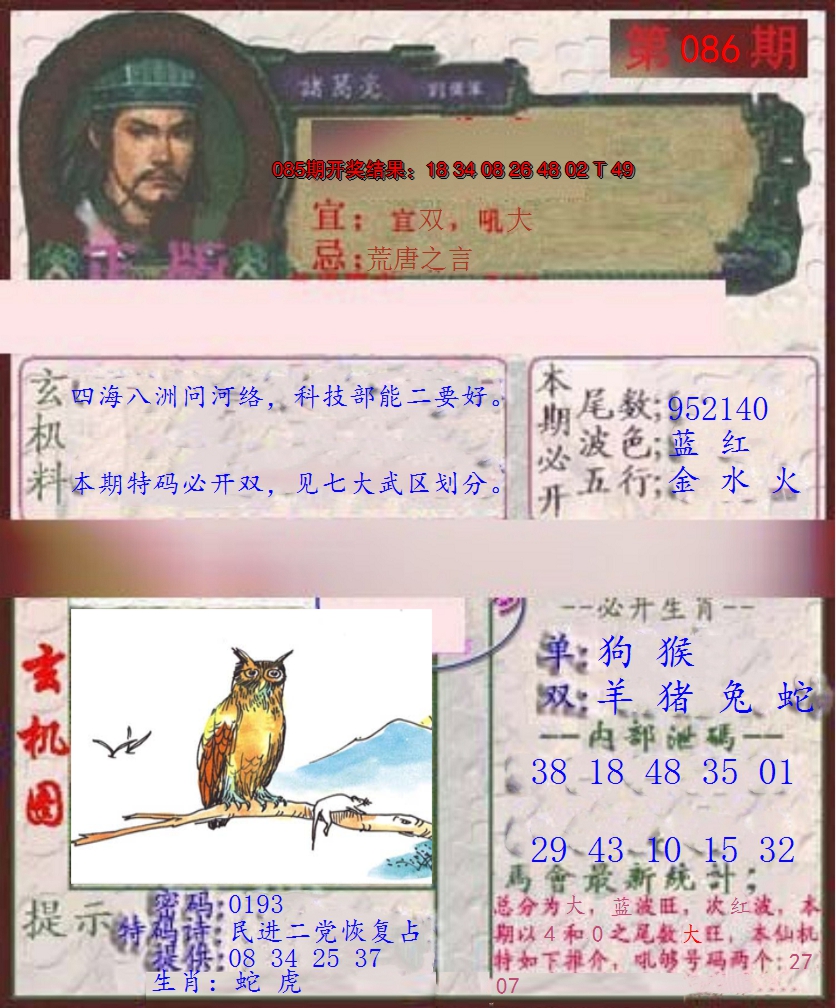 第 086 期
諸葛亮
085期开奖结果：18 34 08 26 48 02 T 49
宜；宜双，吼大
忌；荒唐之言
正版
玄机料
四海八洲问河络，科技部能二要好。
本期特码必开双，见七大武区划分。
本期必开
尾数；952140
波色；蓝 红
五行；金 水 火
玄机图
--必开生肖--
单：狗 猴
双：羊 猪 兔 蛇
一一内部泄碼一一
38 18 48 35 01
29 43 10 15 32
馬會最新統計；
总分为大，蓝波旺，次红波，本
期以4和0之尾数大旺，本仙机
特如下推介，吼够号码两个：27
07
提示
密码：0193
特码诗：民进二党恢复占
提供：08 34 25 37
生肖：蛇 虎